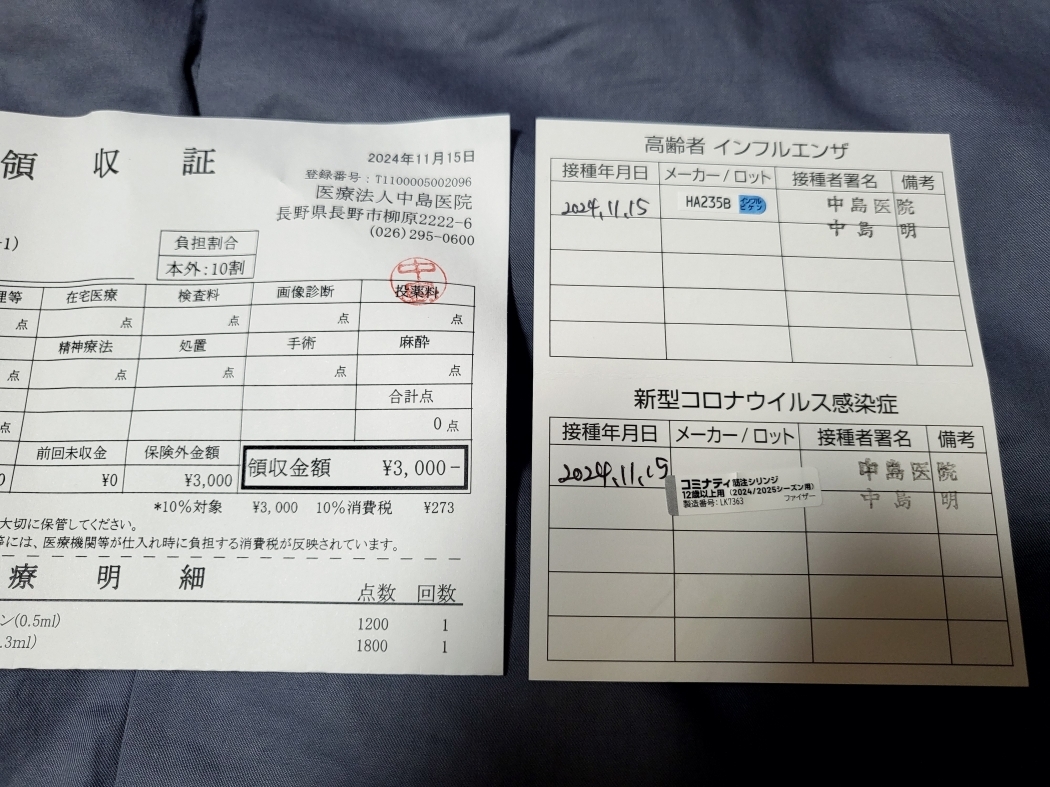 領収証
2024年11月15日
登録番号：T1100005002096
医療法人中島医院
長野県長野市柳原2222-6
(026)295-0600
-1)
負担割合
本外：10割
中
理等 在宅医療 検査料 画像診断 投薬料
点 点 点 点 点
精神療法 処置 手術 麻酔
点 点 点 点 点
合計点
点 0点
前回未収金 保険外金額 領収金額 ¥3,000-
0 ¥0 ¥3,000
*10%対象 ¥3,000 10%消費税 ¥273
大切に保管してください。
等には、医療機関等が仕入れ時に負担する消費税が反映されています。
療明細
点数 回数
ン(0.5ml) 1200 1
.3ml) 1800 1
高齢者 インフルエンザ
接種年月日 メーカー/ロット 接種者署名 備考
2024.11.15 HA235B インフル ビケン 中島医院
中島 明
新型コロナウイルス感染症
接種年月日 メーカー/ロット 接種者署名 備考
2024.11.15 コミナティ筋注シリンジ 中島医院
12歳以上用 (2024/2025シーズン用) 中島 明
製造番号：LK7363 ファイザー